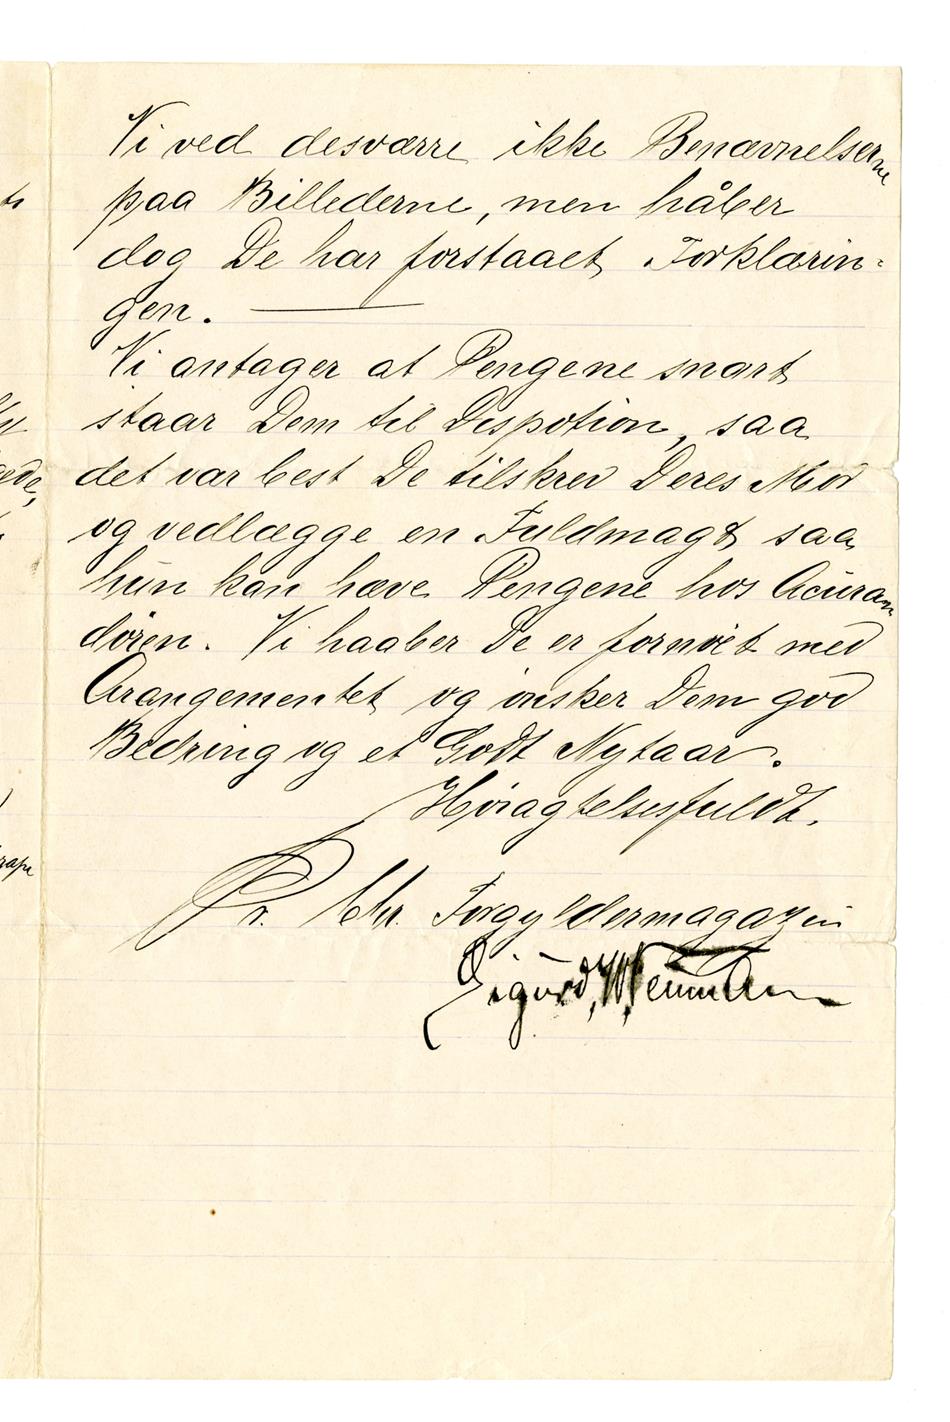 Vi ved desværre ikke Benævnelserne
paa Billederne, men håber
dog De har forstaaet Forklarin-
gen.
Vi antager at Pengene snart
staar Dem til Dispotion, saa
det var best De tilskrev Deres Mor
og vedlægge en Fuldmagt saa
hun kan hæve Pengene hos Acuran
døren. Vi haaber De er fornøiet med
Arangementet og ønsker Dem god
Bedring og et Godt Nytaar.
Høiagtelsesfuldt.
Pr. Chr. Forgyldermagazin
Sigurd